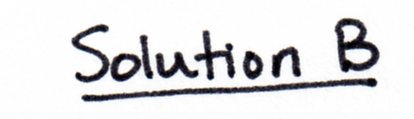 Solution B